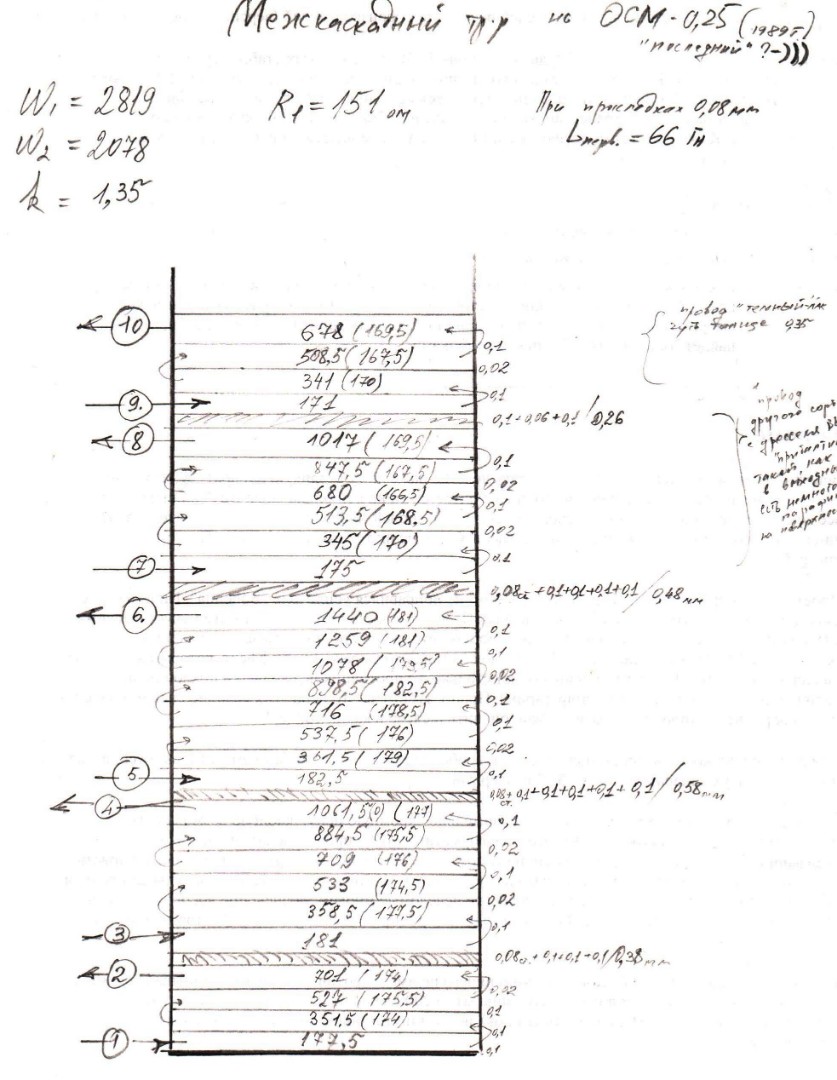 Межкаскадный тр-р на ОСМ-0,25 (1989г.)
"последний" ?-)))
W1 = 2819
R1 = 151 ом
При прокладках 0,08мм
W2 = 2078
Lперв. = 66 Гн
k = 1,35
провод "темный лак"
чуть толще 0,35
10
678 (169,5)
0,1
508,5 (167,5)
0,02
341 (170)
0,1
9.
171
0,1+0,06+0,1 / 0,26
провод
другого
8
1017 (169,5)
0,1
847,5 (167,5)
0,02
680 (166,5)
0,1
513,5 (168,5)
0,02
345 (170)
0,1
7
175
0,08ст +0,1+0,1+0,1+0,1 / 0,48мм
такой, как
в выходн
есть немного
6.
1440 (181)
0,1
1259 (181)
0,1
1078 (179,5)
0,02
898,5 (182,5)
0,1
716 (178,5)
0,1
537,5 (176)
0,02
361,5 (179)
0,1
5
182,5
0,08+0,1+0,1+0,1+0,1+0,1 / 0,58мм
ст.
4
1061,5(0) (177)
0,1
884,5 (175,5)
0,02
709 (176)
0,1
533 (174,5)
0,02
358,5 (177,5)
0,1
3
181
0,08ст.+0,1+0,1+0,1/0,38мм
2
701 (174)
0,02
527 (175,5)
0,1
351,5 (174)
0,1
1
177,5
0,1